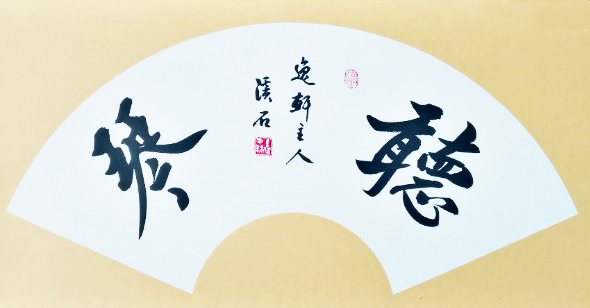 聽
逸軒主人
溪石